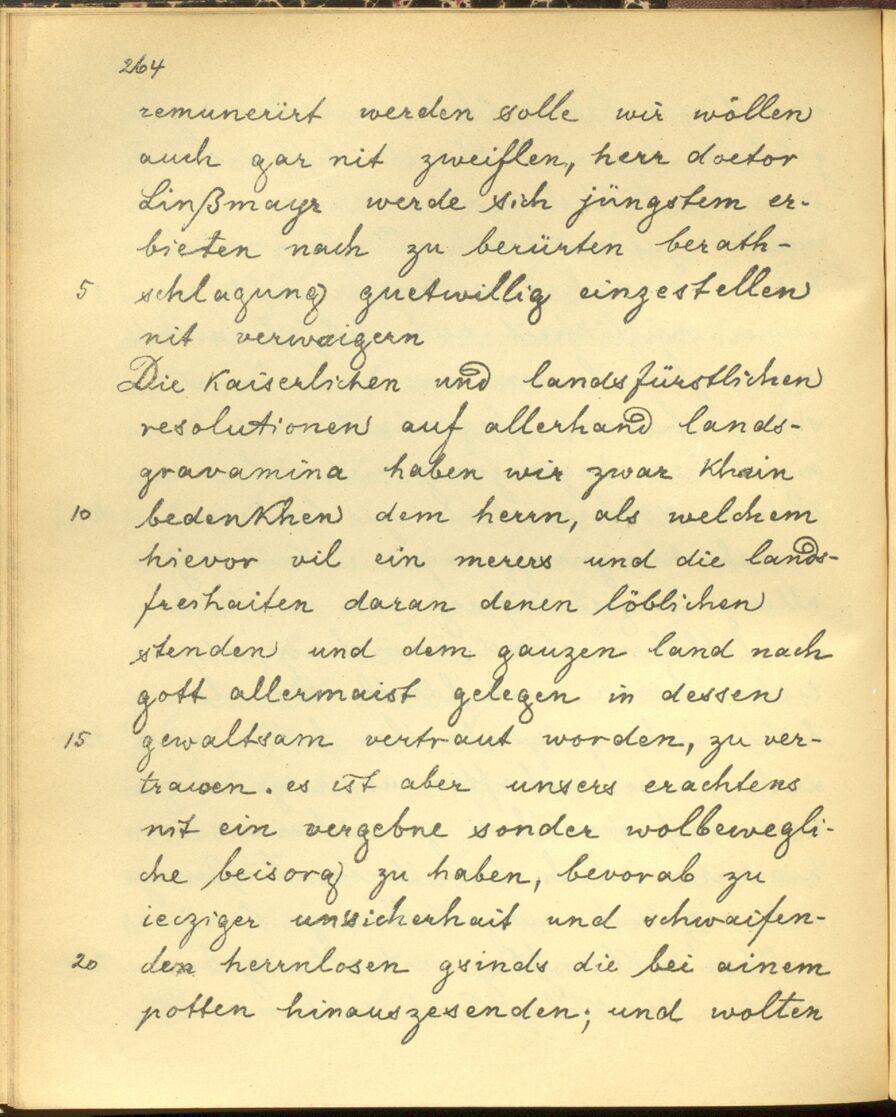 264
remunerirt werden solle wir wöllen
auch gar nit zweiflen, herr doctor
Linßmayr werde sich jüngstem er-
bieten nach zu berürten berath-
5 schlagung guetwillig einzestellen
nit verwaigern
Die Kaiserlichen und landsfürstlichen
resolutionen auf allerhand lands-
gravamina haben wir zwar Khain
10 bedenKhen dem herrn, als welchem
hievor vil ein merers und die lands-
freihaiten daran denen löblichen
stenden und dem ganzen land nach
gott allermaist gelegen in dessen
15 gewaltsam vertraut worden, zu ver-
trawen. es ist aber unsers erachtens
nit ein vergebne sonder wolbewegli-
che beisorg zu haben, bevorab zu
iecziger unsicherhait und schwaifen-
20 den herrnlosen gsinds die bei ainem
potten hinauszesenden; und wolten